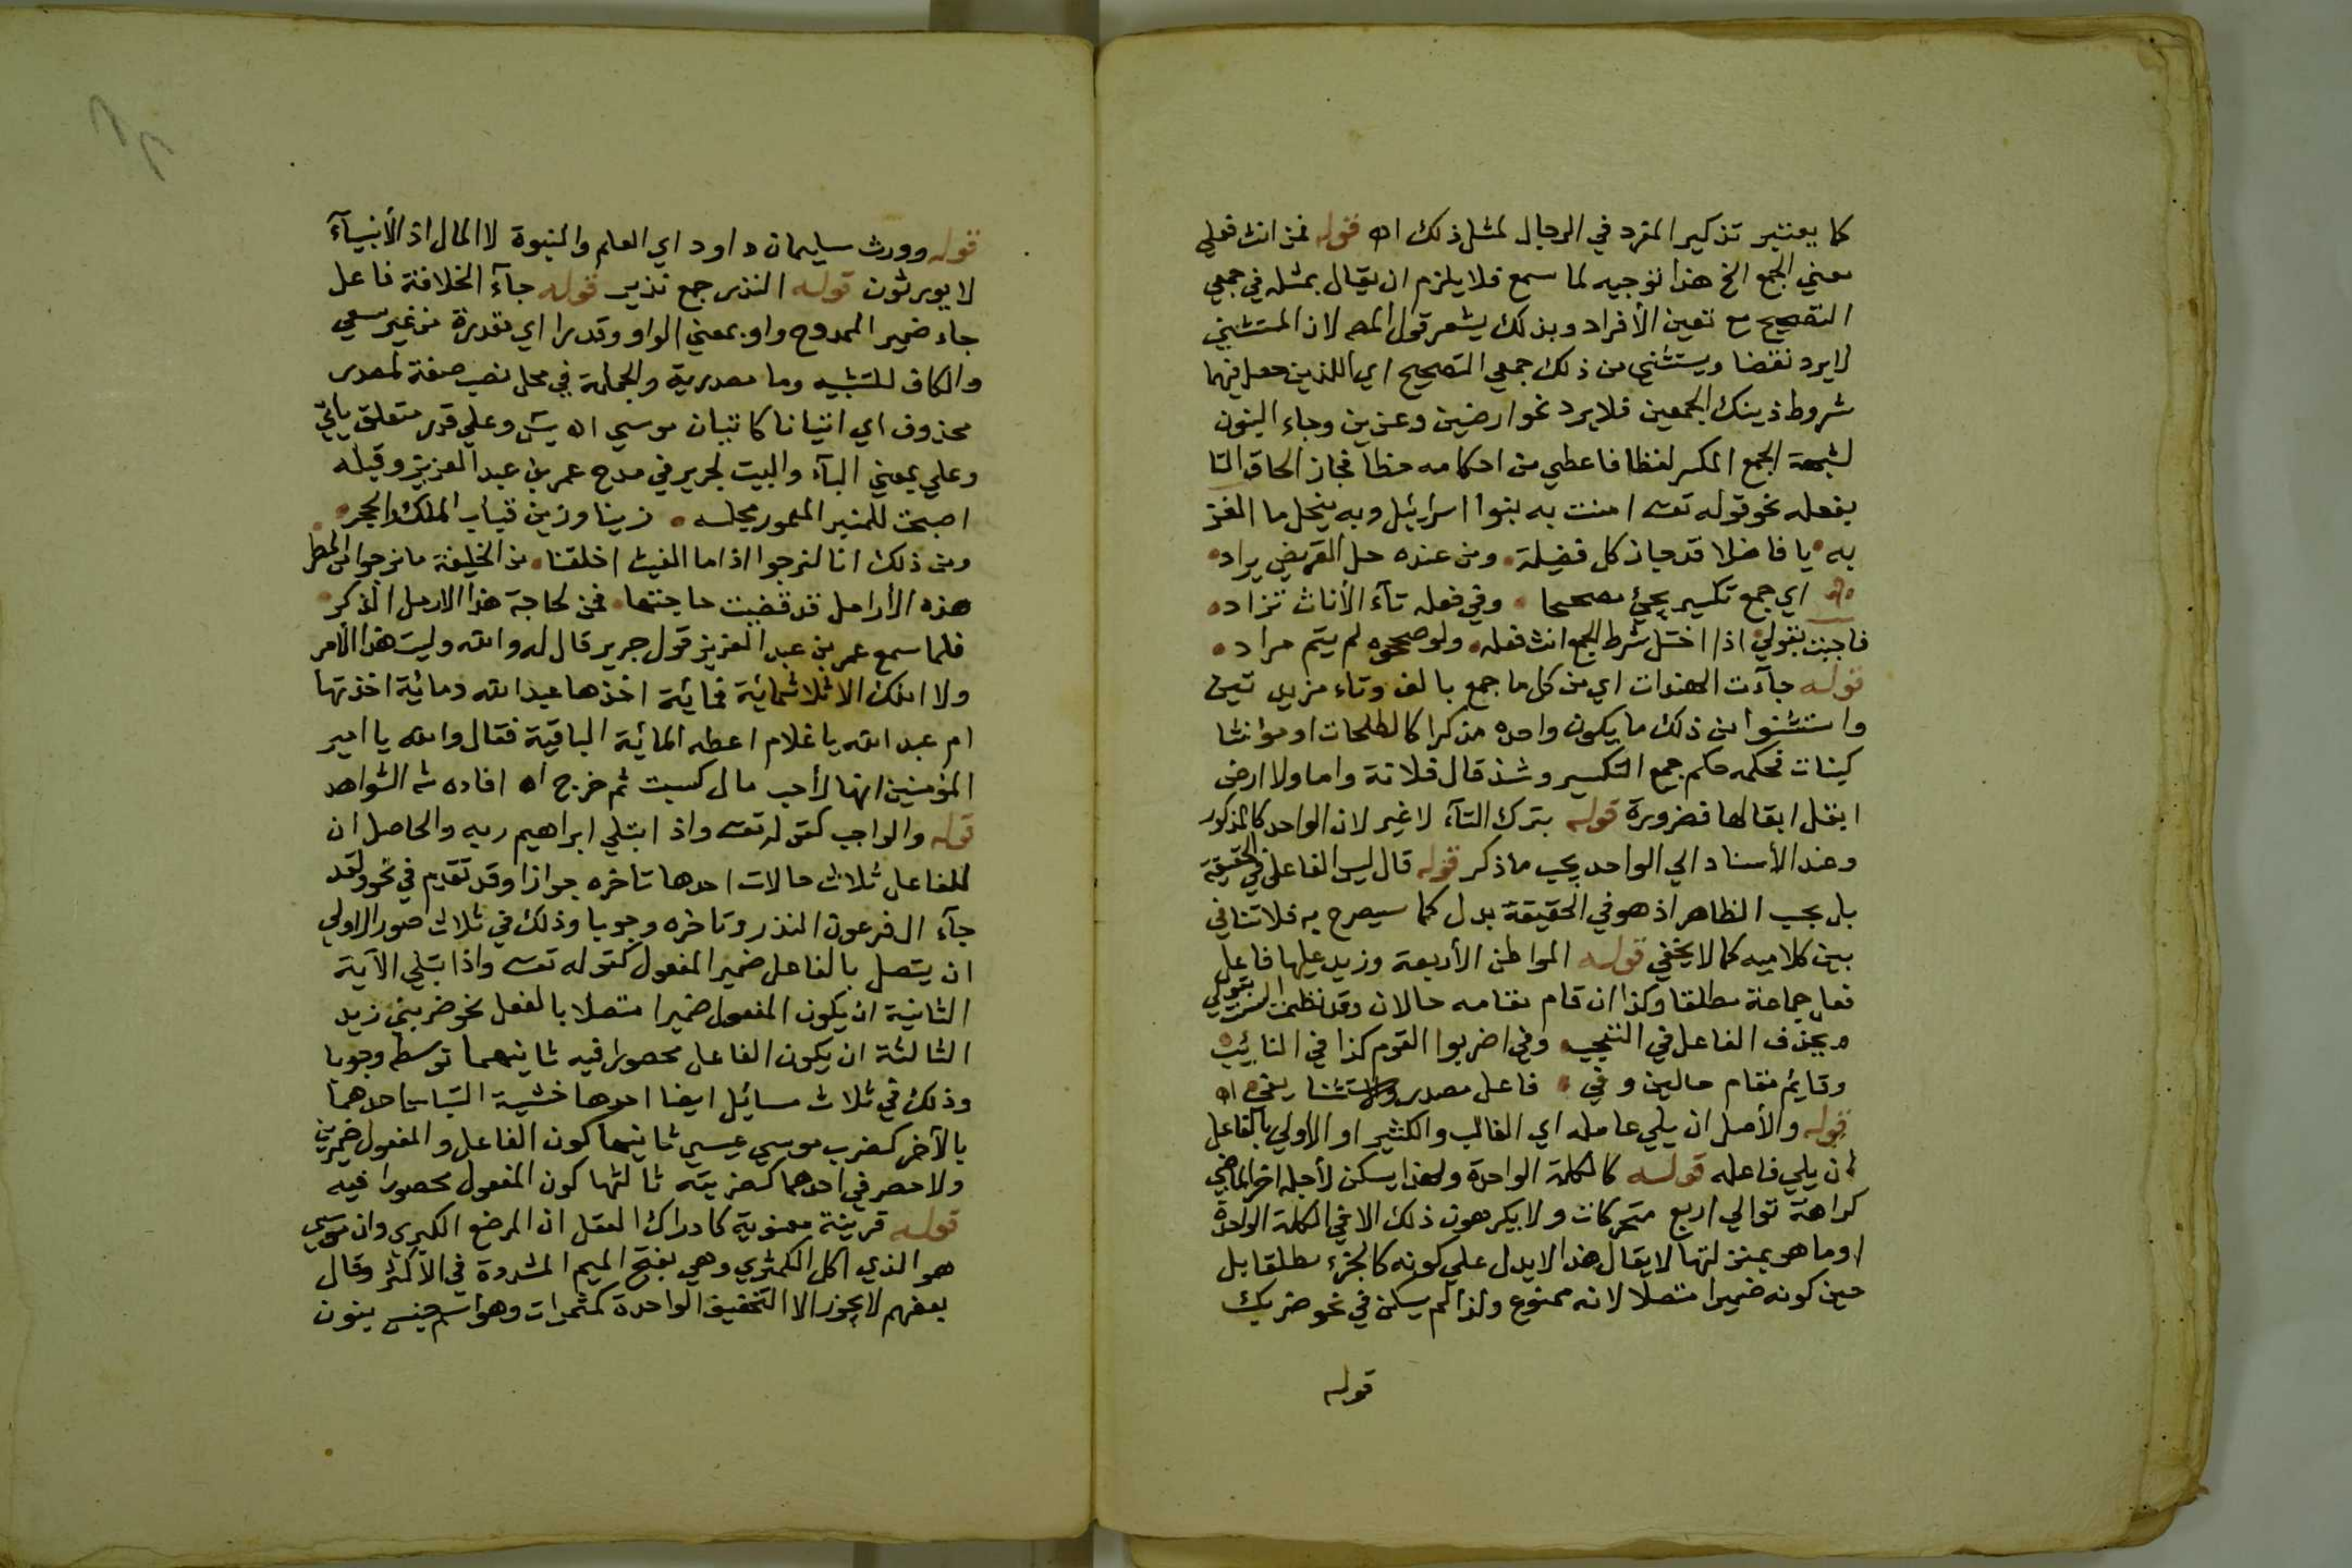 كما يعتبر تذكير المفرد في الرجال لمثل ذلك اه قوله فمن انث فعلي
معني الجمع الخ هذا توجيه لما سمع فلا يلزم ان يقال بمثله في جمعي
التصحيح مع تعين الأفراد وبذلك يشعر قول المص لان المستثني
لا يرد نقضا ويستثني من ذلك جمعي التصحيح اي اللذين حصل فيهما
شروط ذينك الجمعين فلا يرد نحو ارضين وعزين وجاء البنون
لشبهة الجمع المكسر لفظا فاعطي من احكامه حظا فجاز الحاق التا
بفعله نحو قوله تعه امنت به بنوا اسرائيل وبه ينحل ما الغز
به يا فاضلا قد حاز كل فضيلة ومن عنده حل القريض يراد
اي جمع تكسير يجئ مصححا وفي فعله تآء الأناث تزاد
فاجبت بقولي اذا اختل شرط الجمع انث فعله ولو صححوه لم يتم مراد
قوله جآءت الهندات اي من كل ما جمع بالف وتاء مزيدتين
واستثنوا من ذلك ما يكون واحده مذكرا كالطلحات او مؤنثا
كبنات فحكمه حكم جمع التكسير وشذ قال فلانة واما ولا ارض
ابقل ابقالها فضرورة قوله بترك التآء لا غير لان الواحد كالمذكور
وعند الأسناد الي الواحد يجب ما ذكر قوله قال ليس الفاعل في الحقيقة
بل يجب الظاهر اذ هو في الحقيقة بدل كما سيصرح به فلا تنافي
بين كلاميه كما لا يخفي قوله المواطن الأربعة وزيد عليها فاعل
فعل جماعة مطلقا وكذا ان قام مقامه حالان وقد نظمت بقولي
ويحذف الفاعل في التعجب وفي اضربوا القوم كذا في النائب
وقائم مقام حالين وفي فاعل مصدر واستثنا يفي اه
قوله والأصل ان يلي عامله اي الغالب والكثير او الاولي بالفاعل
ان يلي فاعله قوله كالكلمة الواحدة ولهذا يسكن لأجله اخر الماضي
كراهة توالي اربع متحركات ولا يكرهون ذلك الا في الكلمة الواحدة
او ما هو بمنزلتها لا يقال هذا لا يدل علي كونه كالجزء مطلقا بل
حين كونه ضميرا متصلا لانه ممنوع ولذا لم يسكن في نحو ضربك
قوله
قوله وورث سليمان داود اي العلم والنبوة لا المال اذ الأنبيآء
لا يورثون قوله النذر جمع نذير قوله جآء الخلافة فاعل
جاء ضمير الممدوح واو بمعني الواو وقدرا اي مقدرة من غير سعي
والكاف للتشبيه وما مصدرية والجملة في محل نصب صفة لمصدر
محذوف اي اتيانا كاتيان موسي اه يس وعلي قدر متعلق باتي
وعلي بمعني البآء والبيت لجرير في مدح عمر بن عبد العزيز وقبله
اصبحت للمنبر المعمور مجلسه زينا وزين قباب الملك والحجر
ومن ذلك انا لنرجوا اذا ما الغيث اخلفنا من الخليفة ما نرجوا من المطر
هذه الأرامل قد قضيت حاجتها فمن لحاجة هذا الارمل الذكر
فلما سمع عمر بن عبد العزيز قول جرير قال له والله وليت هذا الأمر
ولا املك الا ثلاثمائة فمائة اخذها عبد الله ومائة اخذتها
ام عبد الله يا غلام اعطه المائة الباقية فقال والله يا امير
المؤمنين انها لأحب مال كسبت ثم خرج اه افاده ش الشواهد
قوله والواجب كقوله تعه واذ ابتلي ابراهيم ربه والحاصل ان
للفاعل ثلاث حالات احدها تاخره جوازا وقد تقدم في نحو ولقد
جآء ال فرعون النذر وتاخره وجوبا وذلك في ثلاث صور الاولي
ان يتصل بالفاعل ضمير المفعول كقوله تعه واذ ابتلي الآية
الثانية ان يكون المفعول ضميرا متصلا بالفعل نحو ضربني زيد
الثالثة ان يكون الفاعل محصورا فيه ثانيهما توسطه وجوبا
وذلك في ثلاث مسائل ايضا احدها خشية التباس احدهما
بالآخر كضرب موسي عيسي ثانيها كون الفاعل والمفعول ضميرين
ولا حصر في احدهما كضربته ثالثها كون المفعول محصورا فيه
قوله قرينة معنوية كادراك العقل ان المرضع الكبري وان موسي
هو الذي اكل الكمثري وهي بفتح الميم المشددة في الأكثر وقال
بعضهم لا يجوز الا التخفيف الواحدة كمثرات وهو اسم جنس ينون